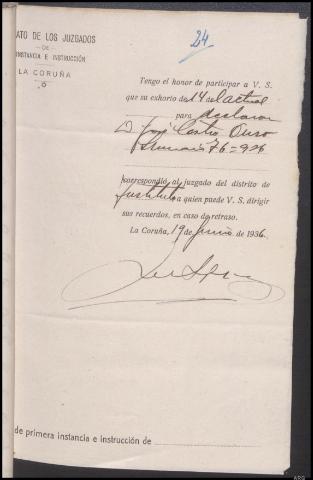 24
ATO DE LOS JUZGADOS
— DE —
INSTANCIA E INSTRUCCIÓN
LA CORUÑA
Tengo el honor de participar a V. S.
que su exhorto de 14 del actual
para declarar
D. José Castro
76=936
correspondió al juzgado del distrito de
Instituto a quien puede V. S. dirigir
sus recuerdos, en caso de retraso.
La Coruña, 19 de Junio de 1936.
de primera instancia e instrucción de
ARG